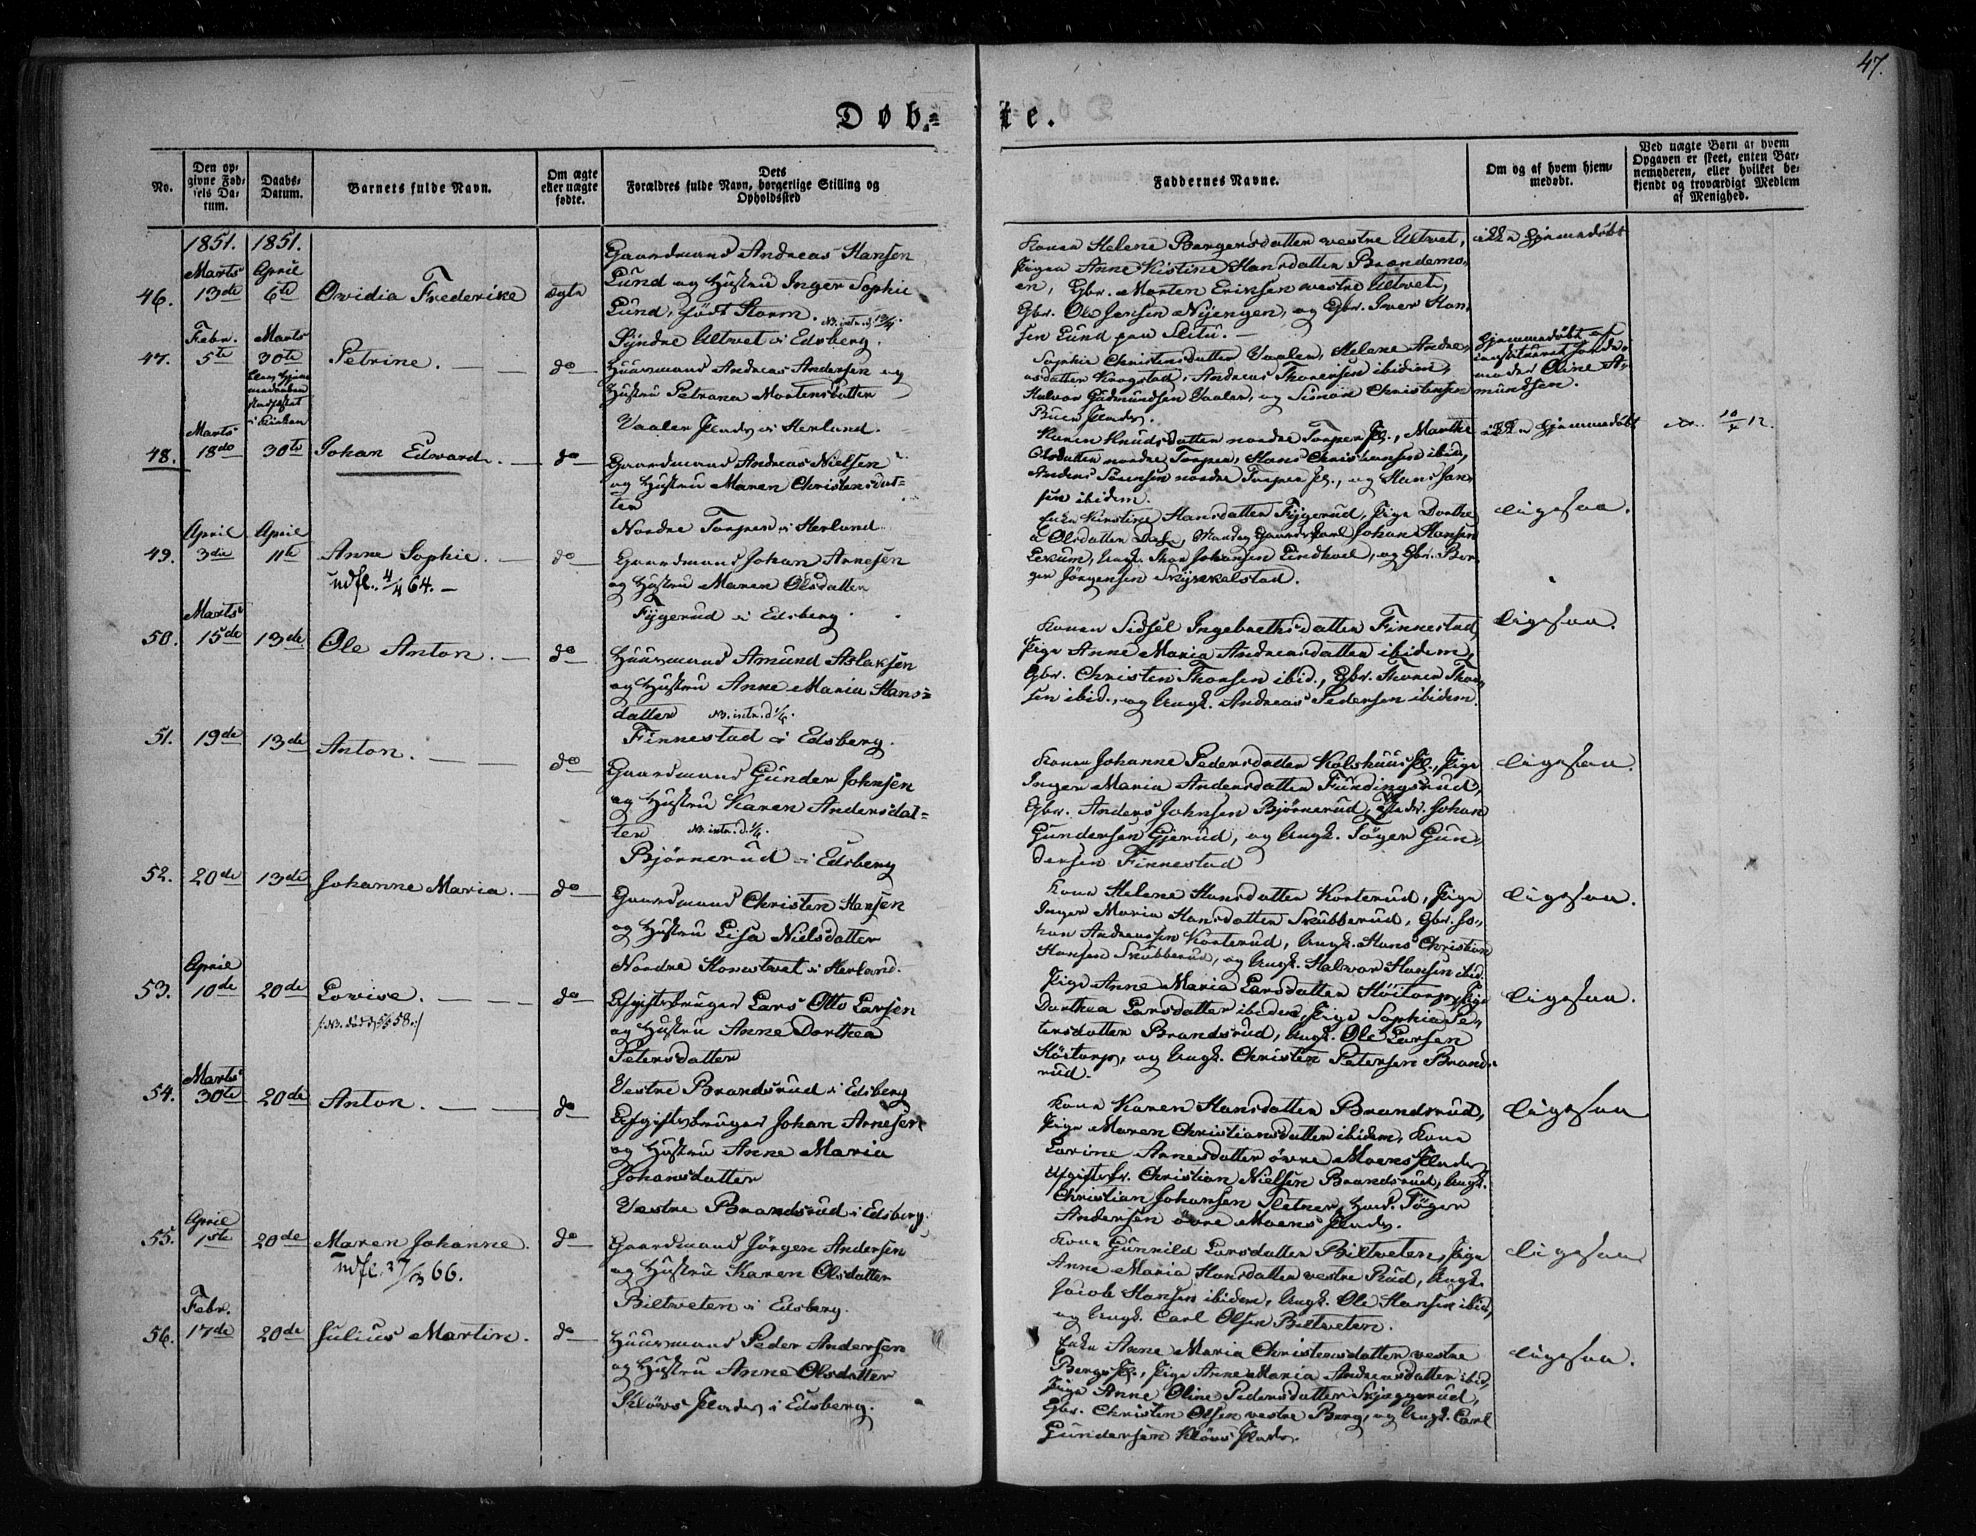 47.
Døb=te.
No.
Den op-
givne Fød-
sels Da-
tum.
Daabs-
Datum.
Barnets fulde Navn.
Om ægte
eller uægte
fødte.
Dets
Forældres fulde Navn, borgerlige Stilling og
Opholdssted
Faddernes Navne.
Om og af hvem hjem-
medøbt.
Ved uægte Børn af hvem
Opgaven er skeet, enten Bar-
nemoderen, eller hvilket be-
kjendt og troværdigt Medlem
af Menighed.
1851. 1851.
46.
Marts
13de
April
6te
Ovidia Frederike
ægte
Gaardmand Andreas Hansen
Lund og Hustru Inger Sophie
Lund, født Storm.
Syndre Ultvet i Edsberg.
Kona Helene Borgersdatter vestre Ultvet,
Pigen Anne Kistine Hansdatter Brændemo-
en, Gbr. Morten Eriksen vestre Ultvet,
Gbr. Ole Jensen Nyengen, og Gbr. Iver Han-
sen Lund paa Slitu.
ikke hjemmedøbt
47.
Febr.
5te
Marts
30te
Petrine.
do
Huusmand Andreas Andersen og
Hustru Petrana Mortensdatter
Vaaler Plads i Herland.
Sophie Christensdatter Vaaler, Helene Andre-
asdatter Krogstad, Andreas Thorersen ibidem,
Halvor Gudmundsen Vaaler, og Simon Christensen
Buer Plads.
Hjemmedøbt af
Jorde-
moder Oline A-
mundsen.
48.
Marts
18de
30te
Johan Edvard.
do
Gaardmand Andreas Nielsen
og Hustru Maren Christensdat-
ter
Nordre Torper i Herland
Karen Knudsdatter nordre Torper Pl., Marthe
Olsdatter nordre Torper, Hans Christensen ibid,
Anders Sørensen nordre Torper Pl., og Hans Jan-
sen ibidem.
ikke hjemmedøbt
49.
April
3die
April
11te
Anne Sophie.
udfl. 4/4 64.
do
Gaardmand Johan Arnesen
og Hustru Maren Olsdatter
Fygerud i Edsberg.
Enke Kirstine Hansdatter Fygerud, Pige Dorthe
Johan Hansen
Lekum, Ungk. Thor Johansen Lindhol, og Gbr. Bor-
ger Jørgensen Skjækelstad.
ligesaa.
50.
Marts
15de
13de
Ole Anton.
do
Huusmand Amund Aslaksen
og Hustru Anne Maria Hans=
datter NB. intr. d. 1/4.
Finnestad i Edsberg.
Konen Sidsel Ingebrethsdatter Finnestad,
Pige Anne Maria Andreasdatter ibidem,
Gbr. Christen Thorsen ibid., Gbr. Thoren Thor-
sen ibid., og Ungk. Andreas Pedersen ibidem.
ligesaa.
51.
19de
13de
Anton.
do
Gaardmand Gunder Johnsen
og Hustru Karen Andersdat=
ter NB. intr. d. 1/4.
Bjørnerud i Edsberg
Konen Johanne Pedersdatter Kolshuus Pl., Pige
Inger Maria Andersdatter Fundingsrud,
Gbr. Anders Johnsen Bjørnerud, Johan
Gundersen Gjerud, og Ungk. Tøger Gun-
dersen Finnestad
ligesaa.
52.
20de
13de
Johanne Maria.
do
Gaardmand Christen Hansen
og Hustru Lisa Nielsdatter
Nordre Honetvet i Herland.
Kona Helene Hansdatter Korterud, Pige
Inger Maria Hansdatter Skubberud, Gbr. Jo-
han Andreassen Korterud, Ungk. Hans Christian
Hansen Skubberud, og Ungk. Halvor Hansen ibid.
ligesaa.
53.
April
10de
20de
Lovise.
do
Afgiftsbruger Lars Otto Larsen
og Hustru Anne Dorthea
Petersdatter
Vestre Brandsrud i Edsberg
Pige Anne Maria Larsdatter Høitorp, Pige
Dorthea Larsdatter ibidem, Pige Sophia Pe-
tersdatter Brandsrud, Ungk. Ole Larsen
Høitorp, og Ungk. Christen Petersen Brands-
rud.
ligesaa.
54.
Marts
30te
20de
Anton.
do
Afgiftsbruger Johan Arnesen
og Hustru Anne Maria
Johansdatter
Vestre Brandsrud i Edsberg.
Kona Karen Hansdatter Brandsrud,
Pige Maren Christiansdatter ibidem, Kona
Larine Arnesdatter øvre Moens Plads,
Afgiftsbr. Christian Nielsen Brandsrud, Ungk.
Christian Johansen Sletner, Huusm. Tøger
Andersen øvre Moens Plads.
ligesaa
55.
April
1ste
20de
Maren Johanne.
udfl. 27/3 66.
do
Gaardmand Jørgen Andersen
og Hustru Karen Olsdatter
Biltveten i Edsberg.
Kona Gunnild Larsdatter Biltveten, Pige
Anne Maria Hansdatter vestre Rud, Ungk.
Jacob Hansen ibidem, Ungk. Ole Hansen ibid,
og Ungk. Carl Olsen Biltveten.
ligesaa
56.
Febr.
17de
20de
Julius Martin.
do
Huusmand Peder Andersen
og Hustru Anne Olsdatter
Kløvs Plads i Edsberg.
Enke Anne Maria Christensdatter vestre
Bergs Pl., Pige Anne Maria Andreasdatter ibid,
Pige Anne Oline Pedersdatter Skjeggerud,
Gbr. Christen Olsen vestre Berg, og Ungk. Carl
Gundersen Kløvs Plads.
ligesaa.